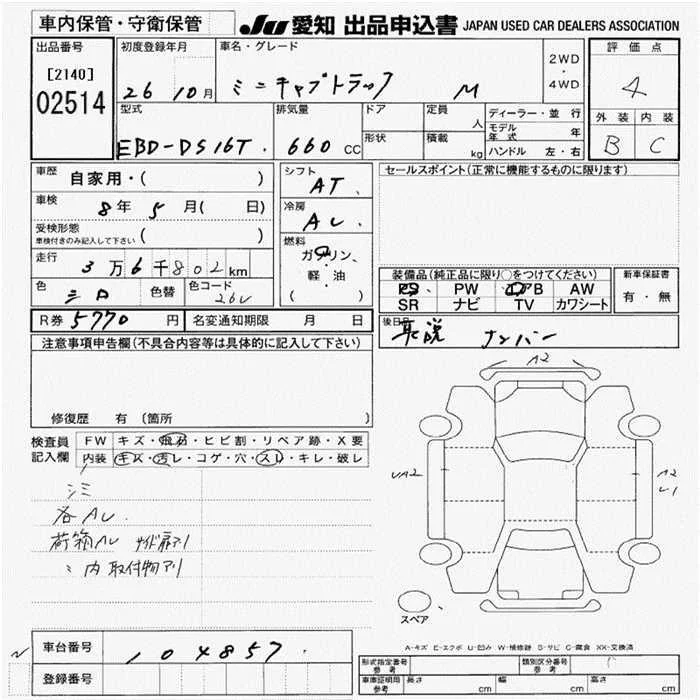 車内保管・守衛保管
JU 愛知 出品申込書 JAPAN USED CAR DEALERS ASSOCIATION
出品番号
[2140]
02514
初度登録年月
26 10月
車名・グレード
ミニキャブトラック M
2WD
・
4WD
評価点
4
外装 内装
B C
型式
EBD-DS16T
排気量
660 CC
ドア
形状
定員
人
積載
kg
ディーラー・並行
モデル年式 年
ハンドル 左・右
車歴
自家用・( )
車検
8年 5月( 日)
受検形態
車検付きのみ記入して下さい ( )
走行
3万6千802km
色
シロ
色替
色コード
26U
シフト
AT
冷房
AC
燃料
ガソリン・
軽・油
( )
セールスポイント(正常に機能するものに限ります)
装備品(純正品に限り○をつけてください)
PS PW エアB AW
SR ナビ TV カワシート
新車保証書
有・無
R券 5770円
名変通知期限 月 日
後日品
取説 ナンバー
注意事項申告欄(不具合内容等は具体的に記入して下さい)
修復歴 有 〔箇所
検査員
記入欄
FW キズ・飛石・ヒビ割・リペア跡・X要
内装 キズ・汚レ・コゲ・穴・スレ・キレ・破レ
各AU
荷箱AU サイド扉アリ
ミ 内 取付物アリ
A2
UA2
A2
U1
スペア
A-キズ E-エクボ U-凹み W-補修跡 S-サビ C-腐食 XX-交換済
車台番号
104857
登録番号
形式指定番号
参考
類別区分番号
参考
車庫証明用
参考
長さ cm 幅 cm 高さ cm